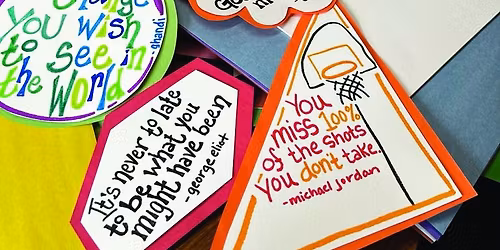 change
you wish
to see in
the World
ghandi
It's never to late
to be what you
might have been
-george eliot
You
miss 100%
of the shots
you don't take.
-michael jordan